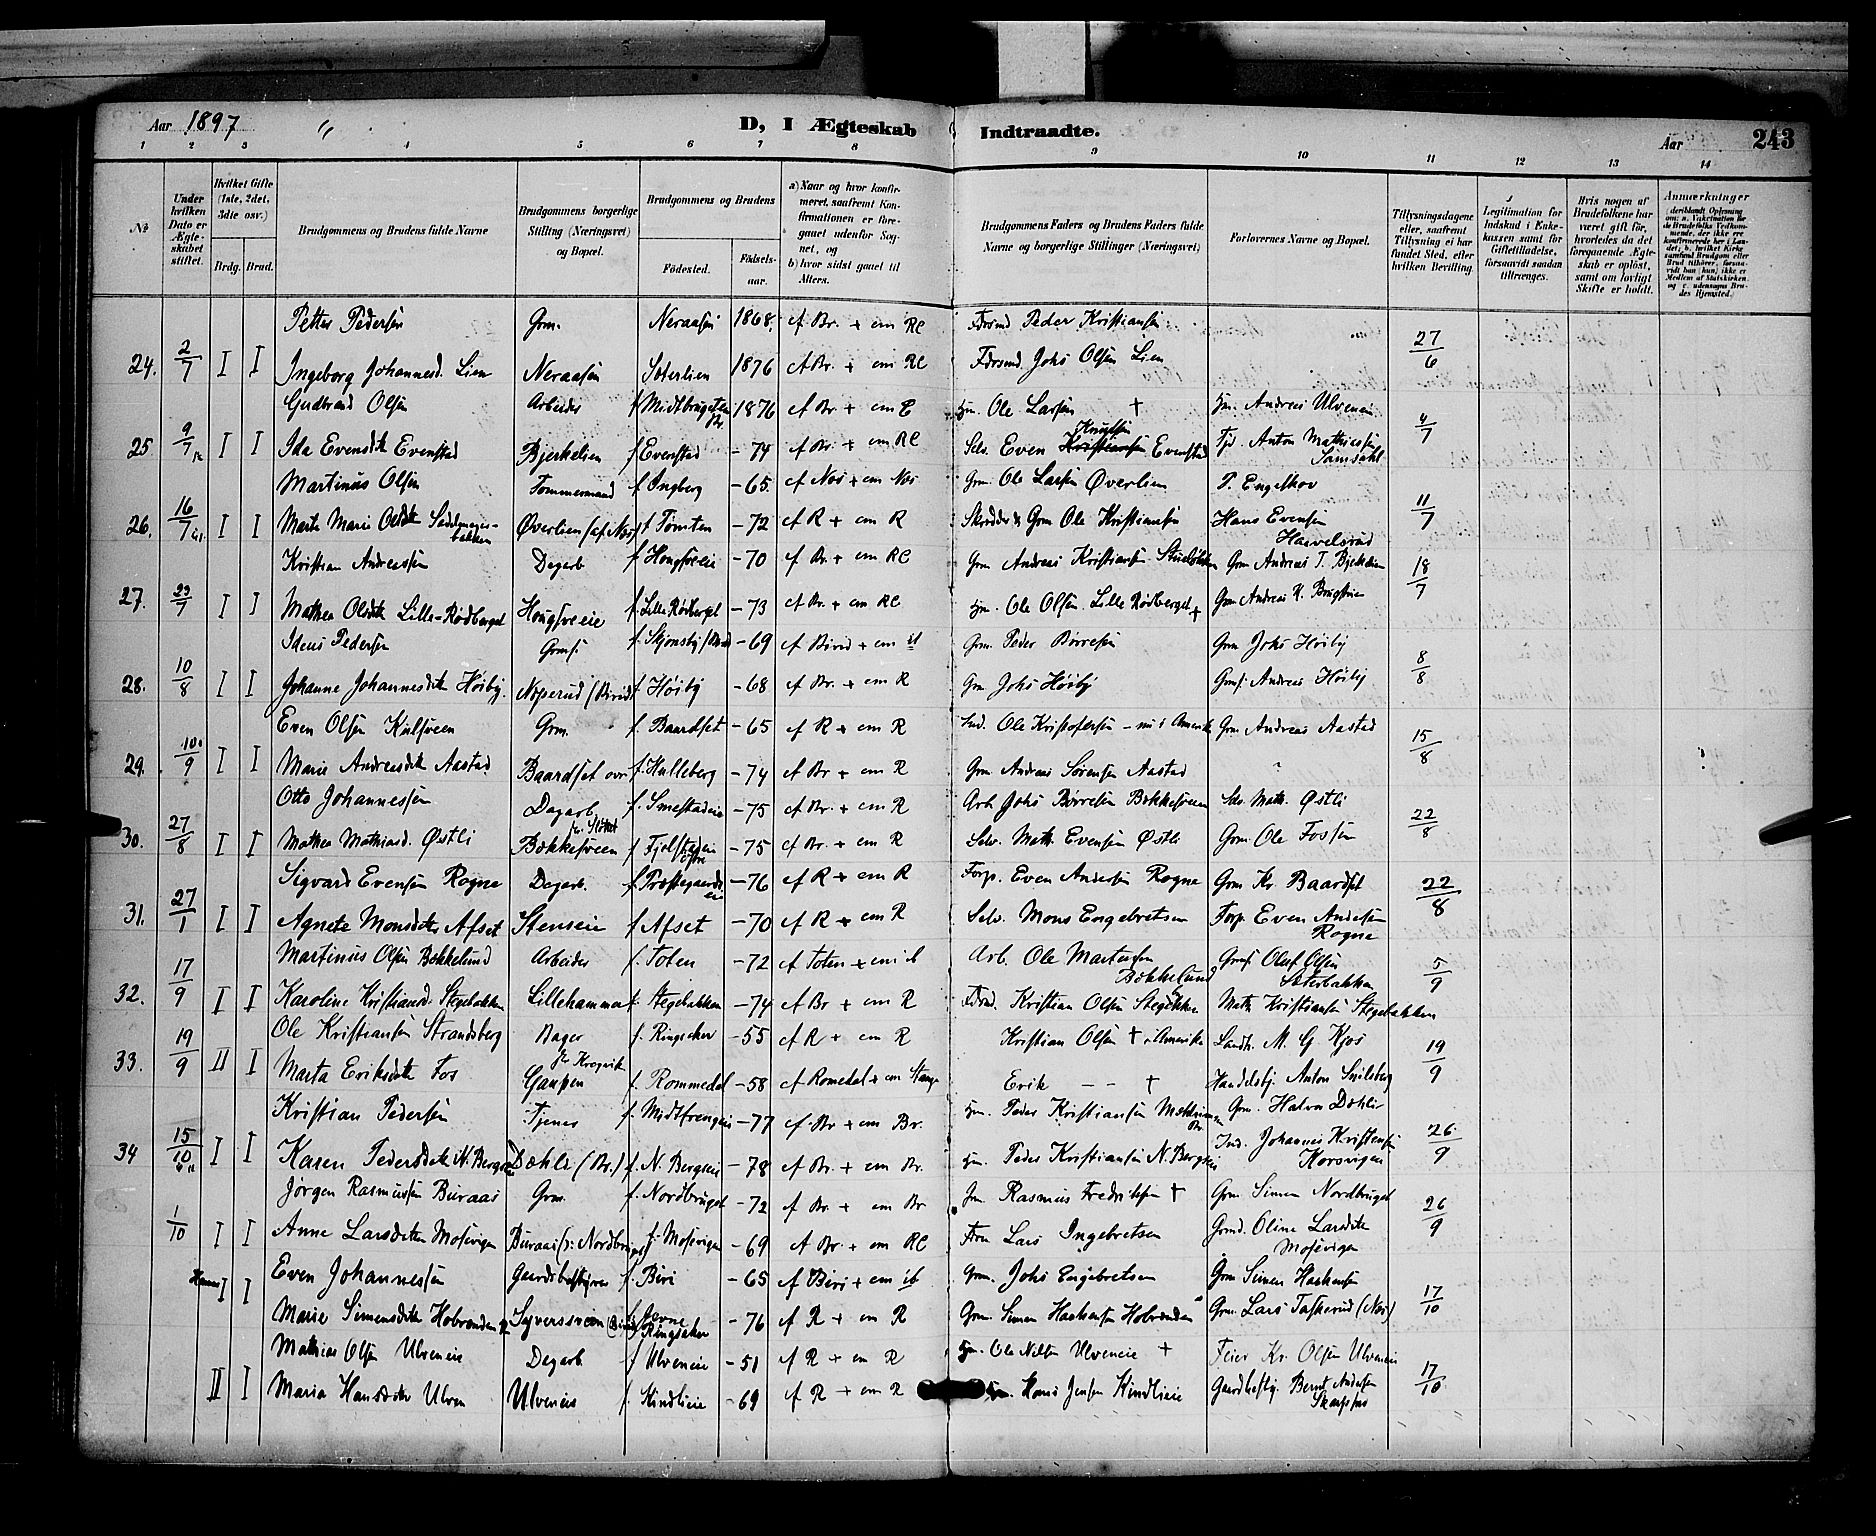 Aar 1897 "
D, I Ægteskab Indtraadte.
Aar 243
1 2 3 4 5 6 7 8 9 10 11 12 13 14
No
Under hvilken Dato er Ægteskabet stiftet.
Hvilket Gifte (1ste, 2det, 3die osv.)
Brdg. Brud.
Brudgommens og Brudens fulde Navne
Brudgommens borgerlige Stilling (Næringsvei) og Bopæl.
Brudgommens og Brudens
Fødested. Fødselsaar.
a) Naar og hvor konfirmeret, saafremt Konfirmationen er foregaaet udenfor Sognet, og
b) hvor sidst gaaet til Alters.
Brudgommens Faders og Brudens Faders fulde Navne og borgerlige Stillinger (Næringsvei)
Forlovernes Navne og Bopæl.
Tillysningsdagene eller, saafremt Tillysning ei har fundet Sted, efter hvilken Bevilling.
Legitimation for Indskud i Enkekassen samt for Giftetilladelse, forsaavidt saadan tiltrænges.
Hvis nogen af Brudefolkene har været gift før, hvorledes da det foregaaende Ægteskab er opløst, samt om lovligt Skifte er holdt.
Anmærkninger
Petter Pedersen Grm. Neraasen 1868. cf Br. + em RC Føvsmd Peder Kristiansen
24. 2/7 I I Ingeborg Johannesd. Lien Neraasen Sæterlien 1876 cf Br. + em RC Johs Olsen Lien 27/6
Gudbrand Olsen Arbeider f Midtbruget 1876 cf Br + em Hm. Ole Larsen † Hm. Andreas Ulveneie
25 9/7 I I Ida Evensdtr Evenstad Bjerkelien f Evenstad -74 cf Br. + em RC Selv. Even Knutsen Evenstad Anton Mathiassen Samsdahl 4/7
Martinus Olsen Tømmermand f Ingberg -65. cf Nes + em Nes Grm Ole Larsen Øverlien P. Engeskov
26. 16/7 I I Marte Marie Olsdtr Øverlien (af Nes) f Tømten -72 cf R + em R Skrædder & Grm Ole Kristiansen Hans Evensen Haavelsrud 11/7
Kristian Andreassen Dagarb f Hougsveie -70 cf Br. + em RC Grm Andreas Kristiansen Grm Andreas T. Bjerkelien
27. 23/7 I I Mathea Olsdtr Lille-Rødberget Hougsveie f. Lille Rødberget -73 cf Br. + em RC Hm. Ole Olsen Lille Rødberget † Grm Andreas K. 18/7
Ideus Pedersen Grmf. f. Skjønsby -69 cf Birid + em it Grm. Peder Børresen Grm Johs Høiby
28. 10/8 I I Johanne Johannesdtr Høiby. Noperud (Birid) f Høiby -68 cf Br. + em R Grm Johs Høiby Grmf. Andreas Høiby 8/8
Even Olsen Kulsveen Grm. f. Baardset -65 cf R + em R Ind. Ole Kristofersen – nu i Amerika Grm Andreas Aastad
29. 10/9 I I Marie Andreasdtr Aastad Baardset øvr f. Hulleberg -74 cf Br + em R Grm Andreas Sørensen Aastad 15/8
Otto Johannessen Dagarb. f. Smestadeie -75 cf Br. + em R Arb Johs Børresen Bækkesveen Selv. Math. Østli
30. 27/8 I I Mathea Mathiasd. Østli Bækkesveen f Fjelstadeie -75 cf Br. + em R Selv. Math. Evensen Østli Grm. Ole Fossen 22/8
Sigvard Evensen Rogne Dagarb. f. Præstegaardseie -76 cf R + em R Forp. Even Andersen Rogne Grm Kr. Baardset
31. 27/1 I I Agnete Monsdtr Afset Stenseie f Afset -70 cf R + em R Selv. Mons Engebretsen Forp Even Andersen Rogne 22/8
Martinus Olsen Bækkelund Arbeider f. Toten -72 cf Toten + em ib Arb. Ole Martinsen Bækkelund Grmf Oluf Olsen Sæterbakken
32. 17/9 I I Karoline Kristiansd. Stegebakken Lillehammer f. Stegebakken -74 cf Br + em R Kristian Olsen Math Kristiansen Stegebakken 5/9
Ole Kristiansen Strandsberg Bager f. Ringsaker -55 cf R + em R Kristian Olsen † i Amerika Landh. M. G Kjos
33. 19/9 II I Marta Eriksdtr Fos Gaupen f. Rommedal -58 cf Romedal + em Stange Erik – – † Handelsbj. Anton Snilsberg 19/9
Kristian Pedersen Tjener f. Midtfrengeie -77 cf. Br + em Br. Hm. Peder Kristiansen Grm. Halvor Døhli
34 15/10 I I Karen Pedersdtr N. Bergseie Dæhli (Br.) f. N. Bergseie -78 cf Br. + em Br. Hm. Peder Kristiansen N. Bergseie Ind. Johannes Kristensen Korsvigen 26/9
Jørgen Rasmussen Buraas Grm. f. Nordbruget -72 cf Br + em Br Hm. Rasmus Fredriksen † Grm Simen Nordbruget
1/10 I I Anne Larsdtr Mosevigen Buraas (): Nordbruget f. Mosevigen -69 cf Br. + em RC Lars Ingebretsen Grmd. Oline Larsdtr Mosevigen 26/9
Even Johannessen Gaardsbestyrer f. Biri -65 cf Biri + em ib Grm. Johs Engebretsen Grm Simen Haakensen
I I Marie Simensdtr Hobrænden Syverssveen (Birid) f. Jevne Ringsaker -76 cf R + em R Grm. Simen Haakensen Hobrænden Grm. Lars Taskerud (Nes) 17/10
Mathias Olsen Ulveneie Dagarb f Ulveneie -51 cf R + em R Hm. Ole Nilsen Ulveneie † Feier Kr. Olsen Ulveneie
II I Maria Hansdtr Ulven Ulveneie f. Kindlieie -69 cf R + em R Hm. Hans Jensen Kindlieie Bernt Andersen 17/10